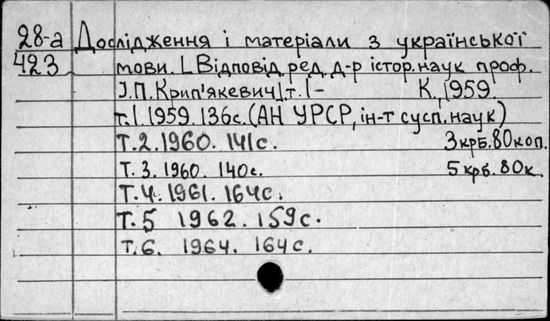 28-а Дослідження і матеріали з української
423 мови. [Відповід. ред. д-р істор. наук проф.
І.П. Крип'якевич] т. 1- К., 1959.
т. 1. 1959. 136с. (АН УРСР, ін-т сусп. наук)
Т. 2. 1960. 141с. 3 крб. 80 коп.
Т. 3. 1960. 140с. 5 крб. 80 к.
Т. 4. 1961. 164с.
Т. 5 1962. 159с.
Т. 6. 1964. 164с.